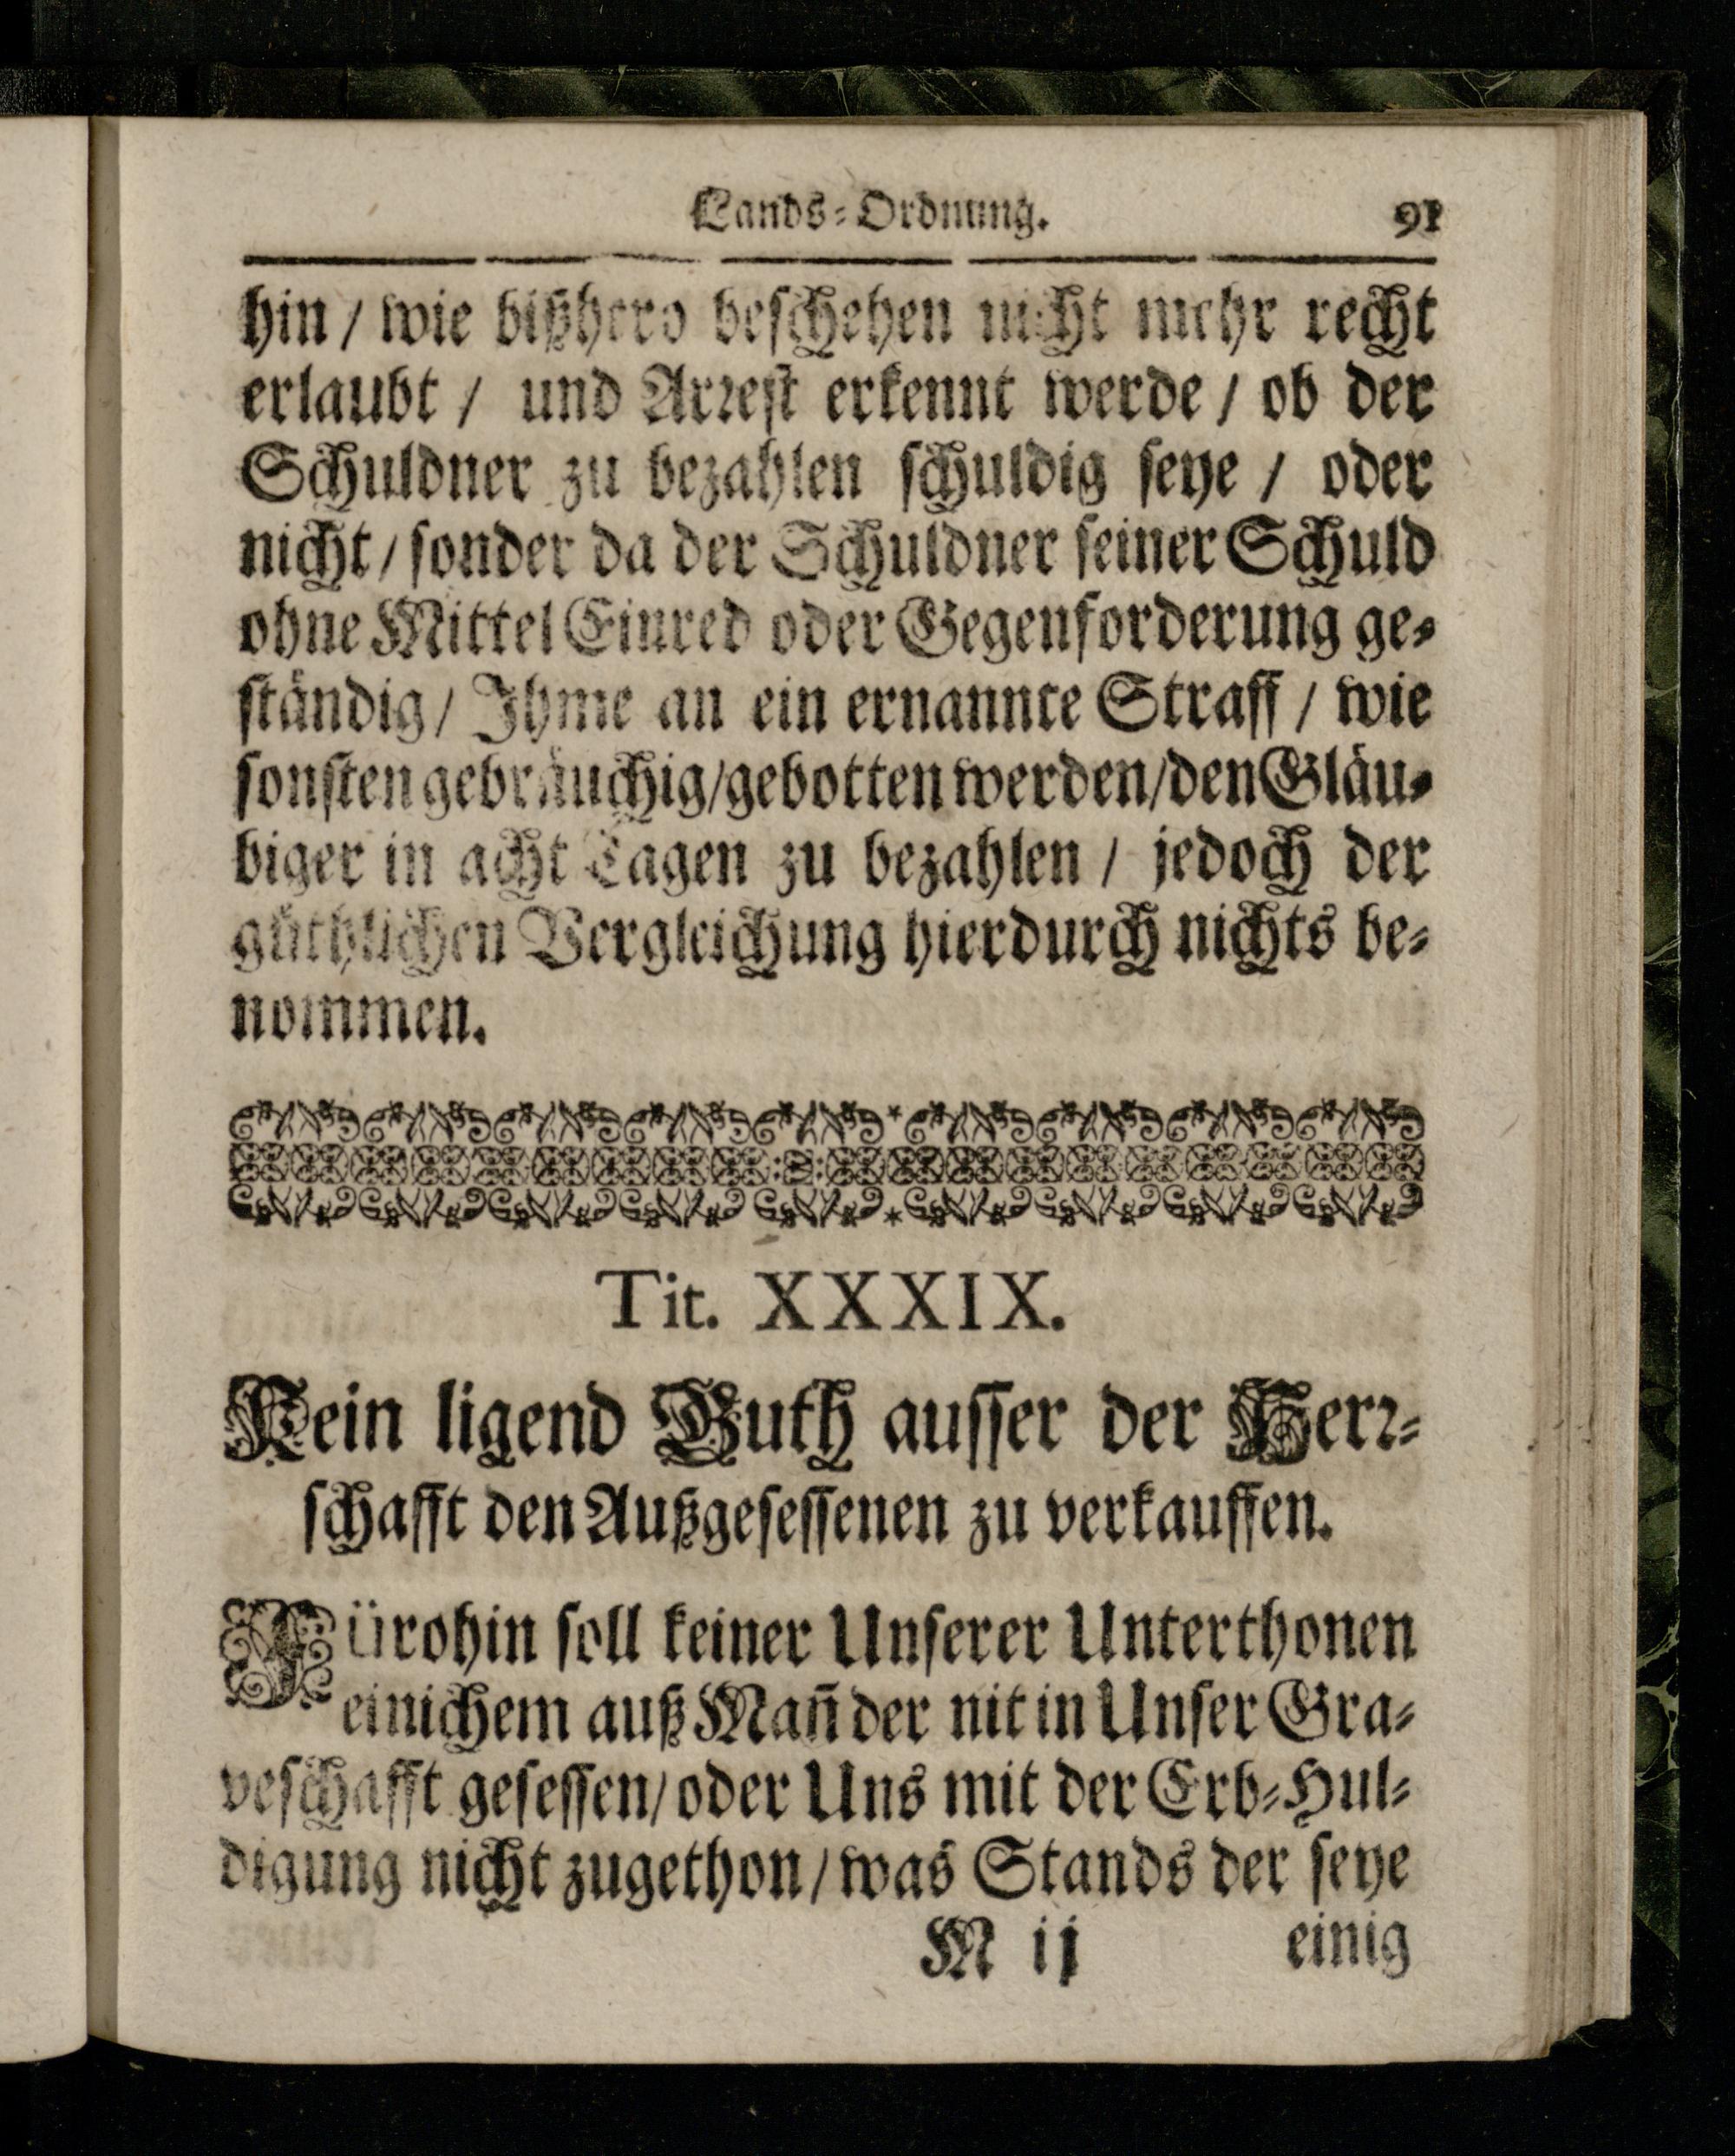 Lands-Ordnung. 91
hin / wie bißhero beschehen nicht mehr recht
erlaubt / und Arrest erkennt werde / ob der
Schuldner zu bezahlen schuldig seye / oder
nicht / sonder da der Schuldner seiner Schuld
ohne Mittel Einred oder Gegenforderung ge-
ständig / Ihme an ein ernannte Straff / wie
sonsten gebräuchig / gebotten werden / den Gläu-
biger in acht Tagen zu bezahlen / jedoch der
güthlichen Vergleichung hierdurch nichts be-
nommen.
Tit. XXXIX.
Kein ligend Guth ausser der Herr-
schafft den Außgesessenen zu verkauffen.
Fürohin soll keiner Unserer Unterthonen
einichem auß Mañ der nit in Unser Gra-
veschafft gesessen / oder Uns mit der Erb-Hul-
digung nicht zugethon / was Stands der seye
M ij einig